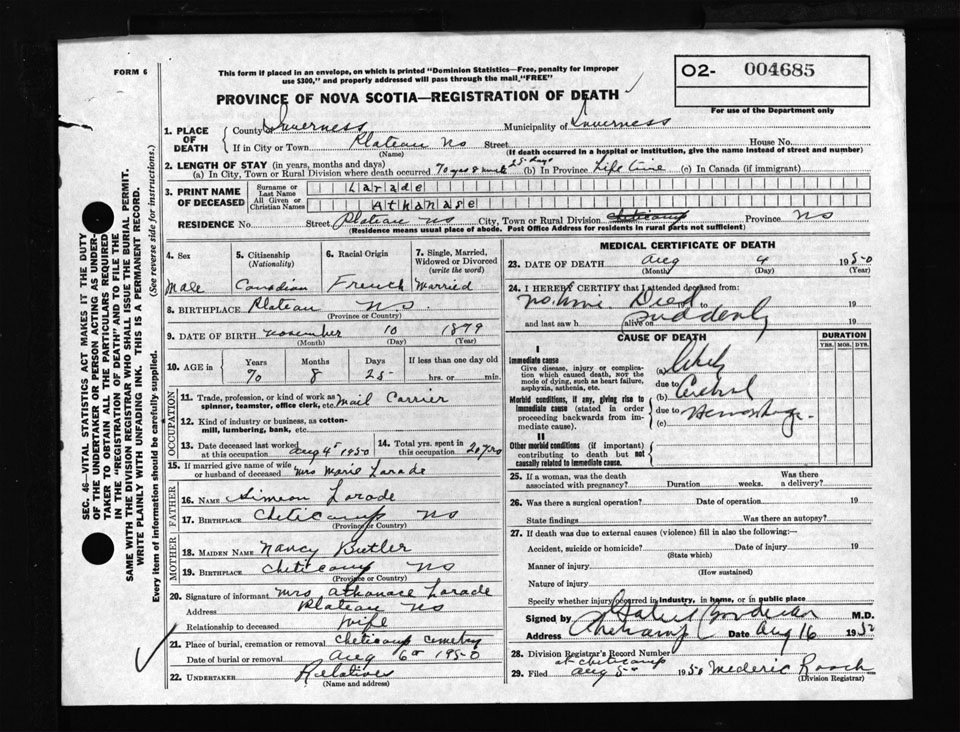 FORM 6
This form if placed in an envelope, on which is printed "Dominion Statistics—Free, penalty for improper
use $300," and properly addressed will pass through the mail "FREE"
O2- 004685
For use of the Department only
PROVINCE OF NOVA SCOTIA—REGISTRATION OF DEATH
SEC. 46—VITAL STATISTICS ACT MAKES IT THE DUTY
OF THE UNDERTAKER OR PERSON ACTING AS UNDER-
TAKER TO OBTAIN ALL THE PARTICULARS REQUIRED
IN THE "REGISTRATION OF DEATH" AND TO FILE THE
SAME WITH THE DIVISION REGISTRAR WHO SHALL ISSUE THE BURIAL PERMIT.
WRITE PLAINLY WITH UNFADING INK. THIS IS A PERMANENT RECORD.
Every item of information should be carefully supplied. (See reverse side for instructions.)
1. PLACE OF DEATH
County of Inverness Municipality of Inverness
If in City or Town Plateau NS Street House No.
(Name) (If death occurred in a hospital or institution, give the name instead of street and number)
2. LENGTH OF STAY (in years, months and days) 25 days
(a) In City, Town or Rural Division where death occurred 70 yrs 8 mths (b) In Province Life time (c) In Canada (if immigrant)
3. PRINT NAME OF DECEASED
Surname or Last Name Larade
All Given or Christian Names Athanase
RESIDENCE No. Street Plateau NS City, Town or Rural Division Cheticamp Province NS
(Residence means usual place of abode. Post Office Address for residents in rural parts not sufficient)
4. Sex
Male
5. Citizenship (Nationality)
Canadian
6. Racial Origin
French
7. Single, Married, Widowed or Divorced (write the word)
Married
8. BIRTHPLACE Plateau N.S.
(Province or Country)
9. DATE OF BIRTH November 10 1879
(Month) (Day) (Year)
10. AGE in Years Months Days If less than one day old
70 8 25 hrs. or min.
OCCUPATION
11. Trade, profession, or kind of work as
spinner, teamster, office clerk, etc. Mail Carrier
12. Kind of industry or business, as cotton-
mill, lumbering, bank, etc.
13. Date deceased last worked
at this occupation Aug 4th 1950
14. Total yrs. spent in
this occupation 20 yrs
15. If married give name of wife
or husband of deceased Mrs Marie Larade
FATHER
16. NAME Simeon Larade
17. BIRTHPLACE Cheticamp NS
(Province or Country)
MOTHER
18. MAIDEN NAME Nancy Butler
19. BIRTHPLACE Cheticamp NS
(Province or Country)
20. Signature of informant Mrs Athanase Larade
Address Plateau NS
Relationship to deceased Wife
21. Place of burial, cremation or removal Cheticamp Cemetry
Date of burial or removal Aug 6th 1950
22. UNDERTAKER Relatives
(Name and address)
MEDICAL CERTIFICATE OF DEATH
23. DATE OF DEATH Aug 4 1950
(Month) (Day) (Year)
24. I HEREBY CERTIFY that I attended deceased from:
Died to 19
and last saw h alive on Suddenly 19
CAUSE OF DEATH DURATION
YRS. MOS. DYS.
I
Immediate cause
Give disease, injury or complica-
tion which caused death, NOT the
mode of dying, such as heart failure,
asphyxia, asthenia, etc.
(a)
due to
Morbid conditions, if any, giving rise to
immediate cause (stated in order
proceeding backwards from im-
mediate cause).
(b) Cerebral
due to Hemorrhage
(c)
II
Other morbid conditions (if important)
contributing to death but not
causally related to immediate cause.
25. If a woman, was the death
associated with pregnancy? Duration weeks. Was there
a delivery?
26. Was there a surgical operation? Date of operation 19
State findings Was there an autopsy?
27. If death was due to external causes (violence) fill in also the following:—
Accident, suicide or homicide? Date of injury 19
(State which)
Manner of injury
(How sustained)
Nature of injury
Specify whether injury occurred in industry, in home, or in public place
Signed by M.D.
Address Cheticamp Date Aug 16 1950
28. Division Registrar's Record Number
at Cheticamp
29. Filed Aug 5th 1950 Mederic Roach
(Division Registrar)